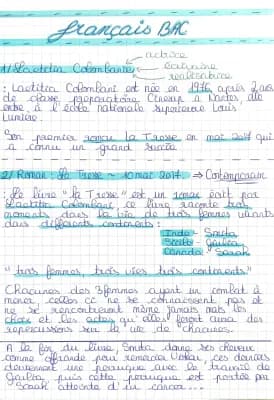 français BAC
actrice
1/ Laetitia Colombani → scénariste
réalisatrice
: Laetitia Colombani est née en 1976, après 2 ans
de classe préparatoire Cinesup à Nantes, elle
entre à l'école nationale supérieure Louis
Lumière.
Son premier roman La Tresse en mai 2017 qui
a connu un grand succès
2/ Roman : La Tresse ~ 10 mai 2017. → Contemporain
: Le livre "la Tresse" est un roman écrit par
Laetitia Colombani, ce livre raconte trois
moments dans la vie de trois femmes vivants
dans différents continents :
Inde - Smita
Sicile - Giulia
Canada - Sarah
"trois femmes, trois vies, trois continents"
Chacunes des 3 femmes ayant un combat à
mener, celles ci ne se connaissent pas et
ne se rencontreront même jamais mais les
choix et les actes qu'elles feront aura des
répercussions sur la vie de chacunes.
A la fin du livre, Smita donne ses cheveux
comme offrande pour remercier Vishnu, ces derniers
deviennent une perruque avec le travail de
Giulia, puis cette perruque est portée par
Sarah atteinte d'un cancer...